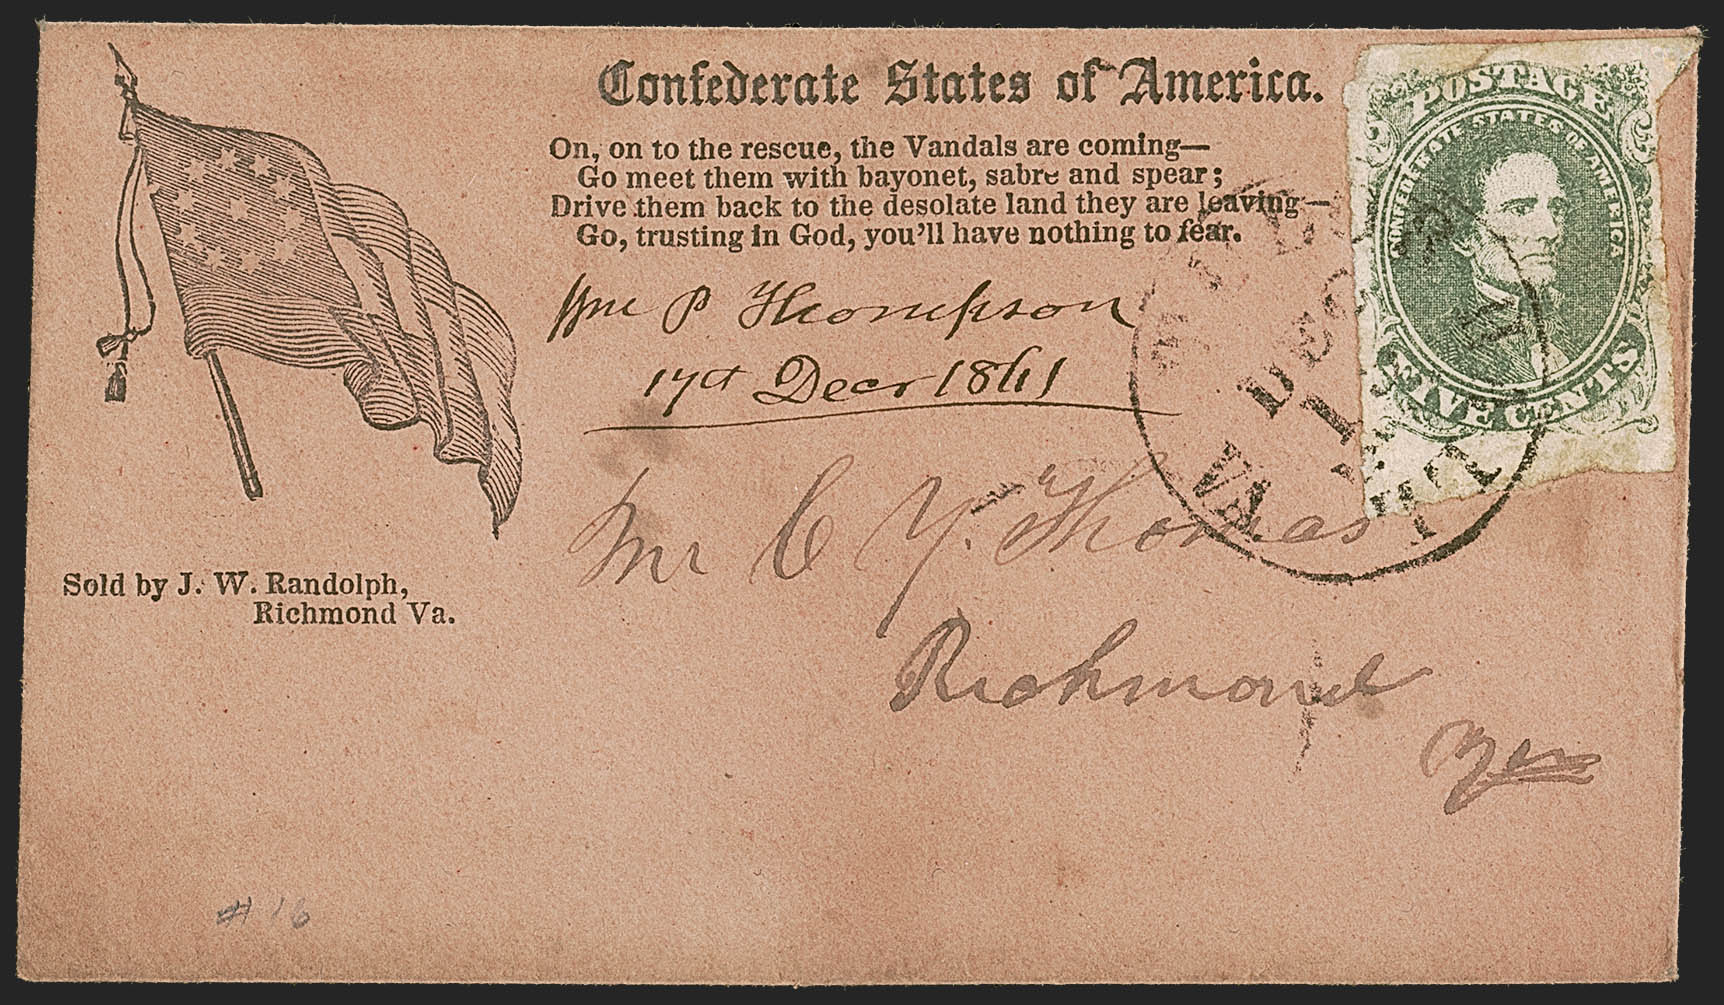 Confederate States of America.
On, on to the rescue, the Vandals are coming—
Go meet them with bayonet, sabre and spear;
Drive them back to the desolate land they are leaving—
Go, trusting in God, you'll have nothing to fear.
Wm P Thompson
17th Decr 1861
POSTAGE
CONFEDERATE STATES OF AMERICA
FIVE CENTS
DEC
VA
Mr C Y. Thomas
Richmond
Sold by J. W. Randolph,
Richmond Va.
# 16